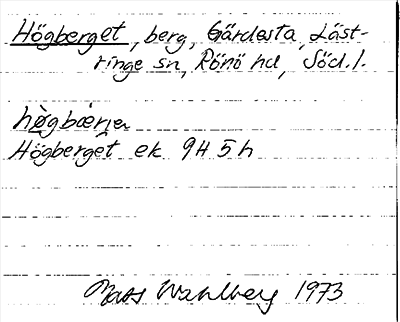 Högberget, berg, Gärdesta, Läst-
ringe sn, Rönö hd, Söd.l.
høgbærjen
Högberget ek 9H 5h
Mats Wahlberg 1973